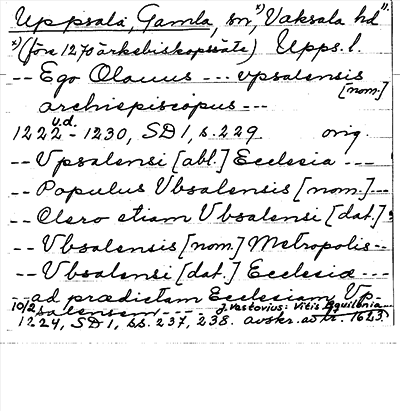 Uppsala, Gamla, sn, x) Vaksala hd 11.
x) (före 1270 ärkebiskopssäte) Upps. l.
-- Ego Olauus --- vpsalensis [nom.]
archiepiscopus ---
1222 u.d. - 1230, SD 1, s. 229 orig.
-- Vpsalensi [abl.] Ecclesia ---
-- Populus Vbsalensis [nom.] ---
-- Clero etiam Vbsalensi [dat.]
-- Vbsalensis [nom.] Metropolis --
-- Vbsalensi [dat.] Ecclesiæ ---
-- ad prædictam Ecclesiam Vp-
salensem ---- J. Vastovius: Vitis Aquilonia ---
10/2 1224, SD 1, ss. 237, 238. avskr. av tr. 1623.